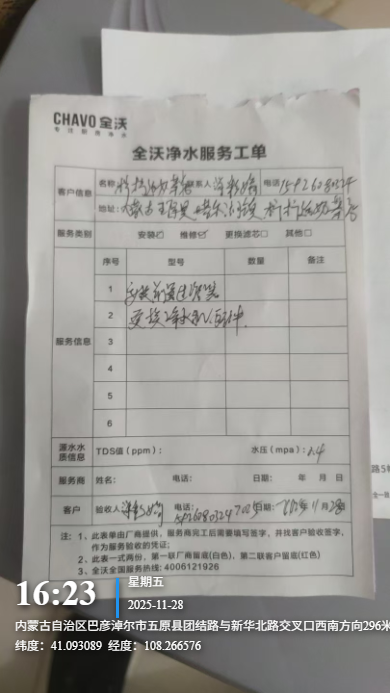 CHAVO 全沃
专注厨房净水
全沃净水服务工单
客户信息 名称 联系人 电话 15926080324
地址： 内蒙古五原县
服务类别 安装☑ 维修☑ 更换滤芯☐ 其他☐
服务信息 序号 型号 数量 备注
1 安装前置过滤器
2 更换净水机配件
3
4
5
6
源水水质信息 TDS值（ppm）： 水压（mpa）：0.4
服务商 姓名： 电话： 日期： 年 月 日
客户 验收人 电话： 15926080324 日期：2025年11月28日
注：1、此表单由厂商提供，服务商完工后需要填写签字，并找客户验收签字，
作为服务验收的凭证；
2、此表一式两份，第一联厂商留底(白色)，第二联客户留底(红色)
3、全沃全国服务热线：4006121926
16:23
星期五
2025-11-28
内蒙古自治区巴彦淖尔市五原县团结路与新华北路交叉口西南方向296米
纬度：41.093089 经度：108.266576